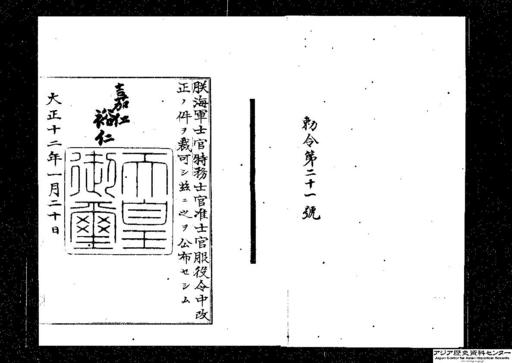 勅令第二十一號
朕海軍士官特務士官准士官服役令中改
正ノ件ヲ裁可シ茲ニ之ヲ公布セシム
嘉仁
裕仁
天皇
御璽
大正十二年一月二十日
アジア歴史資料センター
Japan Center for Asian Historical Records